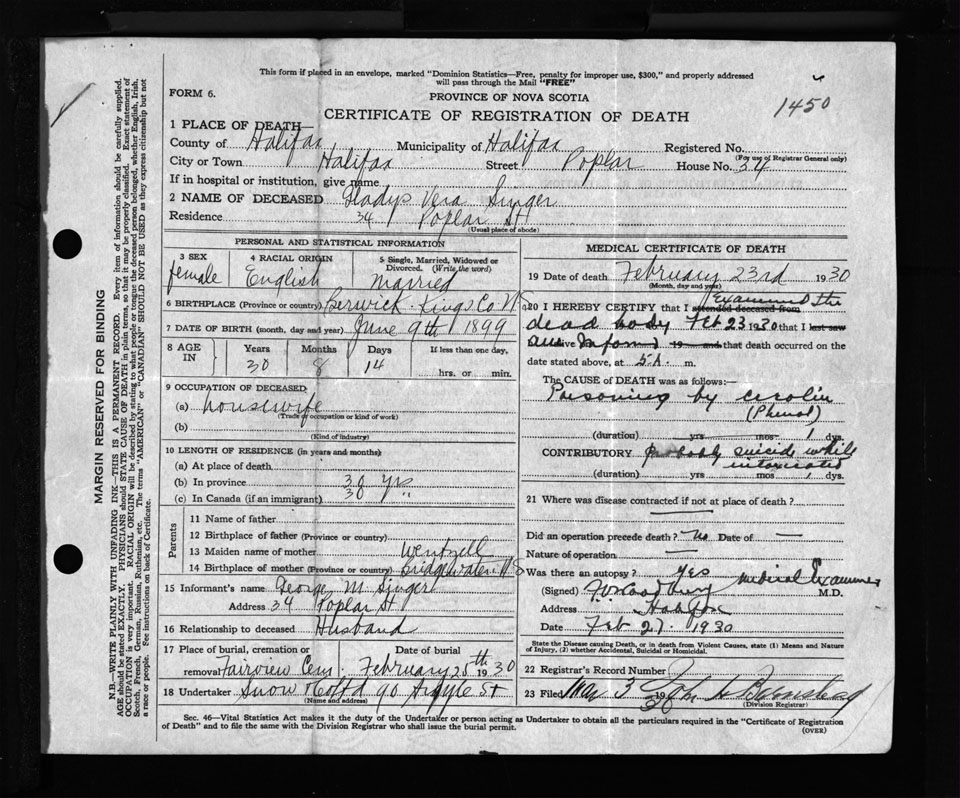 This form if placed in an envelope, marked "Dominion Statistics—Free, penalty for improper use, $300," and properly addressed
will pass through the Mail "FREE"
1450
FORM 6.
PROVINCE OF NOVA SCOTIA
CERTIFICATE OF REGISTRATION OF DEATH
1 PLACE OF DEATH—
County of Halifax Municipality of Halifax Registered No.
(For use of Registrar General only)
City or Town Halifax Street Poplar House No. 34
If in hospital or institution, give name
2 NAME OF DECEASED Gladys Vera Singer
Residence 34 Poplar St
(Usual place of abode)
PERSONAL AND STATISTICAL INFORMATION
3 SEX 4 RACIAL ORIGIN 5 Single, Married, Widowed or
Divorced. (Write the word)
female English Married
6 BIRTHPLACE (Province or country) Berwick. Kings Co N S
7 DATE OF BIRTH (month, day and year) June 9th 1899
8 AGE IN Years Months Days If less than one day,
30 8 14 hrs. or min.
9 OCCUPATION OF DECEASED
(a) housewife
(Trade or occupation or kind of work)
(b)
(Kind of industry)
10 LENGTH OF RESIDENCE (in years and months)
(a) At place of death
(b) In province 30 yrs
(c) In Canada (if an immigrant) 30 "
Parents
11 Name of father
12 Birthplace of father (Province or country)
13 Maiden name of mother Wentzell
14 Birthplace of mother (Province or country) Bridgewater N S
15 Informant's name George M. Singer
Address 34 Poplar St
16 Relationship to deceased Husband
17 Place of burial, cremation or Date of burial
removal Fairview Cem. February 25th 1930
18 Undertaker Snow & Co Ltd 90 Argyle St
(Name and address)
MEDICAL CERTIFICATE OF DEATH
19 Date of death February 23rd 1930
(Month, day and year)
Examined the
20 I HEREBY CERTIFY that I attended deceased from
dead body Feb 23 1930 that I last saw
alive 19 and that death occurred on the
date stated above, at 5 A. m.
The CAUSE OF DEATH was as follows:—
Poisoning by
(Phenol)
(duration) yrs mos 1 dys.
CONTRIBUTORY Probably suicide while
intoxicated
(duration) yrs mos 1 dys.
21 Where was disease contracted if not at place of death? —
Did an operation precede death? No Date of —
Nature of operation —
Was there an autopsy? Yes Medical Examiner
(Signed) M.D.
Address Halifax
Date Feb 27. 1930
State the Disease causing Death, or in death from Violent Causes, state (1) Means and Nature
of Injury, (2) whether Accidental, Suicidal or Homicidal.
22 Registrar's Record Number
23 Filed Mar 3 1930
(Division Registrar)
Sec. 46—Vital Statistics Act makes it the duty of the Undertaker or person acting as Undertaker to obtain all the particulars required in the "Certificate of Registration
of Death" and to file the same with the Division Registrar who shall issue the burial permit.
(OVER)
MARGIN RESERVED FOR BINDING
N.B.—WRITE PLAINLY WITH UNFADING INK—THIS IS A PERMANENT RECORD. Every item of information should be carefully supplied.
AGE should be stated EXACTLY. PHYSICIANS should STATE CAUSE OF DEATH in plain terms, so that it may be properly classified. Exact statement of
OCCUPATION is very important. RACIAL ORIGIN will be described by stating to what people or tongue the deceased person belonged, whether English, Irish,
Scotch, French, German, Russian, Ruthenian, etc. The terms "AMERICAN" or "CANADIAN" SHOULD NOT BE USED as they express citizenship but not
a race or people. See instructions on back of Certificate.